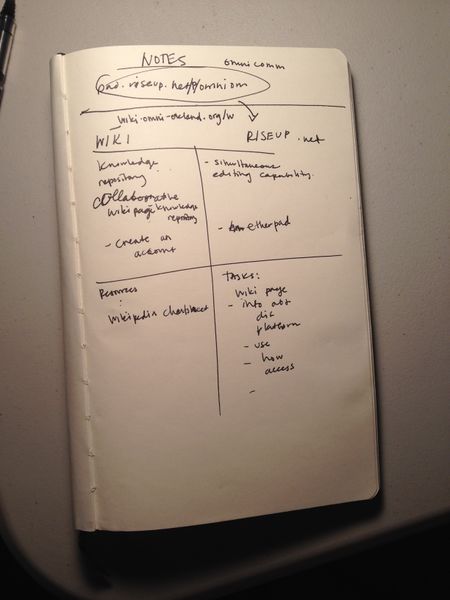 NOTES
omnicomm
pad.riseup.net/p/omniom
wiki.omni-oakland.org/w
WIKI
RISEUP.net
Knowledge
repository
Collaborative
wiki page knowledge
repository
- create an
account
- simultaneous
editing capability.
- etherpad
Resources
:
Wikipedia cheatsheet
TASKS:
Wiki page
- info abt
dif
platform
- use
- how
access
-